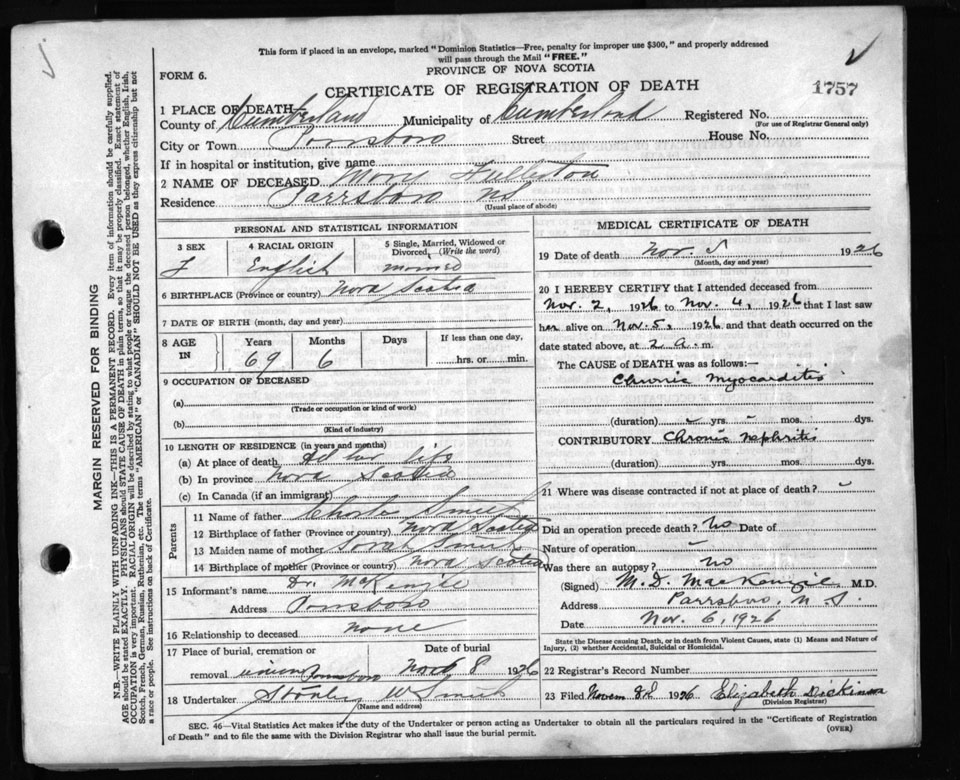 This form if placed in an envelope, marked "Dominion Statistics—Free, penalty for improper use $300," and properly addressed
will pass through the Mail "FREE."
PROVINCE OF NOVA SCOTIA
FORM 6.
CERTIFICATE OF REGISTRATION OF DEATH
1757
1 PLACE OF DEATH
County of Cumberland Municipality of Cumberland Registered No.
(For use of Registrar General only)
City or Town Parrsboro Street House No.
If in hospital or institution, give name
2 NAME OF DECEASED Mary Fullerton
Residence Parrsboro NS
(Usual place of abode)
PERSONAL AND STATISTICAL INFORMATION
3 SEX 4 RACIAL ORIGIN 5 Single, Married, Widowed or Divorced, (Write the word)
F English married
6 BIRTHPLACE (Province or country) Nova Scotia
7 DATE OF BIRTH (month, day and year)
8 AGE IN Years Months Days If less than one day,
69 6 hrs. or min.
9 OCCUPATION OF DECEASED
(a)
(Trade or occupation or kind of work)
(b)
(Kind of industry)
10 LENGTH OF RESIDENCE (in years and months)
(a) At place of death All her life
(b) In province Nova Scotia
(c) In Canada (if an immigrant)
Parents
11 Name of father Smith
12 Birthplace of father (Province or country) Nova Scotia
13 Maiden name of mother Smith
14 Birthplace of mother (Province or country) Nova Scotia
15 Informant's name Dr. McKenzie
Address Parrsboro
16 Relationship to deceased none
17 Place of burial, cremation or Date of burial
removal Parrsboro Nov 8 1926
18 Undertaker Stanley W Smith
(Name and address)
MEDICAL CERTIFICATE OF DEATH
19 Date of death Nov 5 1926
(Month, day and year)
20 I HEREBY CERTIFY that I attended deceased from
Nov. 2, 1926 to Nov. 4, 1926 that I last saw
her alive on Nov. 5, 1926 and that death occurred on
date stated above, at 2 a. m.
The CAUSE OF DEATH was as follows:—
Chronic Myocarditis
(duration) yrs. mos. dys.
CONTRIBUTORY Chronic Nephritis
(duration) yrs. mos. dys.
21 Where was disease contracted if not at place of death?
Did an operation precede death? No Date of
Nature of operation
Was there an autopsy? no
(Signed) M. D. MacKenzie M.D.
Address Parrsboro, N. S.
Date Nov. 6, 1926
State the Disease causing Death, or in death from Violent Causes, state (1) Means and Nature of
Injury, (2) whether Accidental, Suicidal or Homicidal.
22 Registrar's Record Number
23 Filed Novem 8th 1926 Elizabeth Dickinson
(Division Registrar)
SEC. 46—Vital Statistics Act makes it the duty of the Undertaker or person acting as Undertaker to obtain all the particulars required in the "Certificate of Registration
of Death" and to file the same with the Division Registrar who shall issue the burial permit.
(OVER)
MARGIN RESERVED FOR BINDING
N.B.—WRITE PLAINLY WITH UNFADING INK—THIS IS A PERMANENT RECORD. Every item of information should be carefully supplied.
AGE should be stated EXACTLY. PHYSICIANS should STATE CAUSE OF DEATH in plain terms, so that it may be properly classified. Exact statement of
OCCUPATION is very important. RACIAL ORIGIN will be described by stating to what people or tongue the deceased person belonged, whether English, Irish,
Scotch, French, German, Russian, Ruthenian, etc. The terms "AMERICAN" or "CANADIAN" SHOULD NOT BE USED as they express citizenship but not
a race or people. See instructions on back of Certificate.